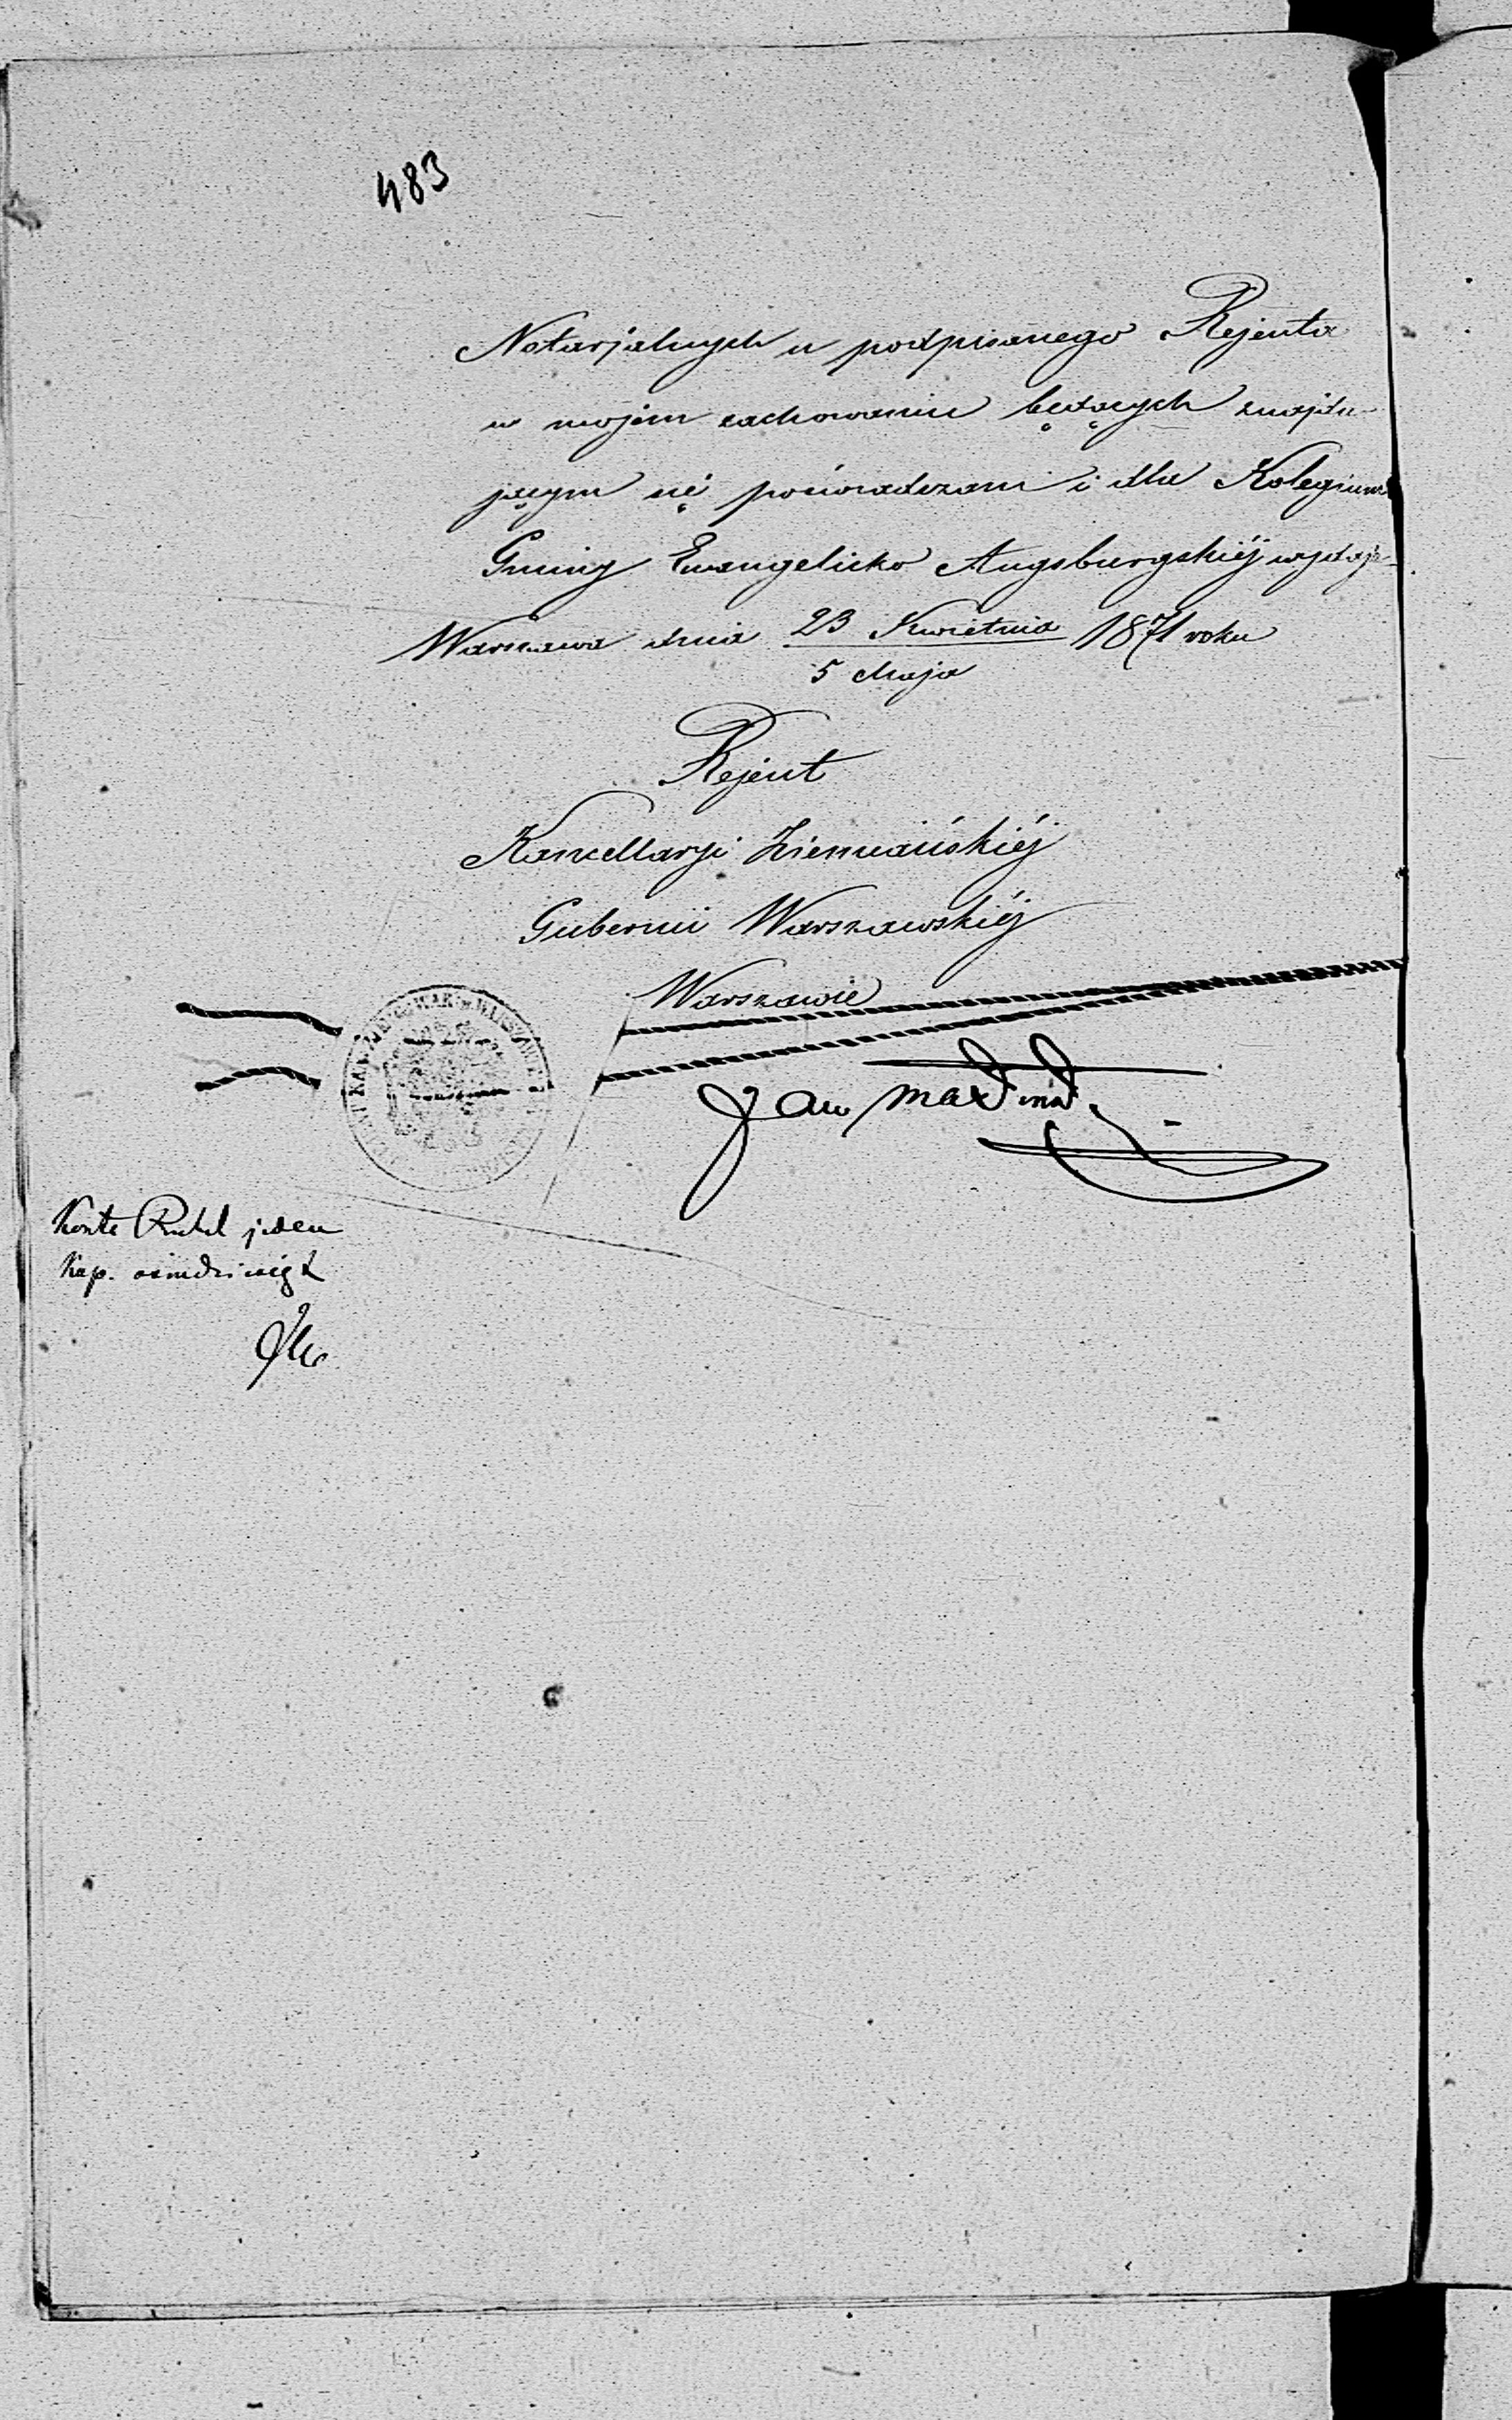 483
Notarjalnych u podpisanego Rejenta
w mojem zachowaniu będących znajdu-
jącym się poświadczam i dla Kolegium
Gminy Ewangelicko Augsburgskiéj wydaję
Warszawa dnia 23 Kwietnia 1871 roku
5 Maja
Rejent
Kancellaryi Ziemiańskiéj
Gubernii Warszawskiéj
Warszawie
Jan
Koszta Rubel jeden
Kop. ośmdziesiąt